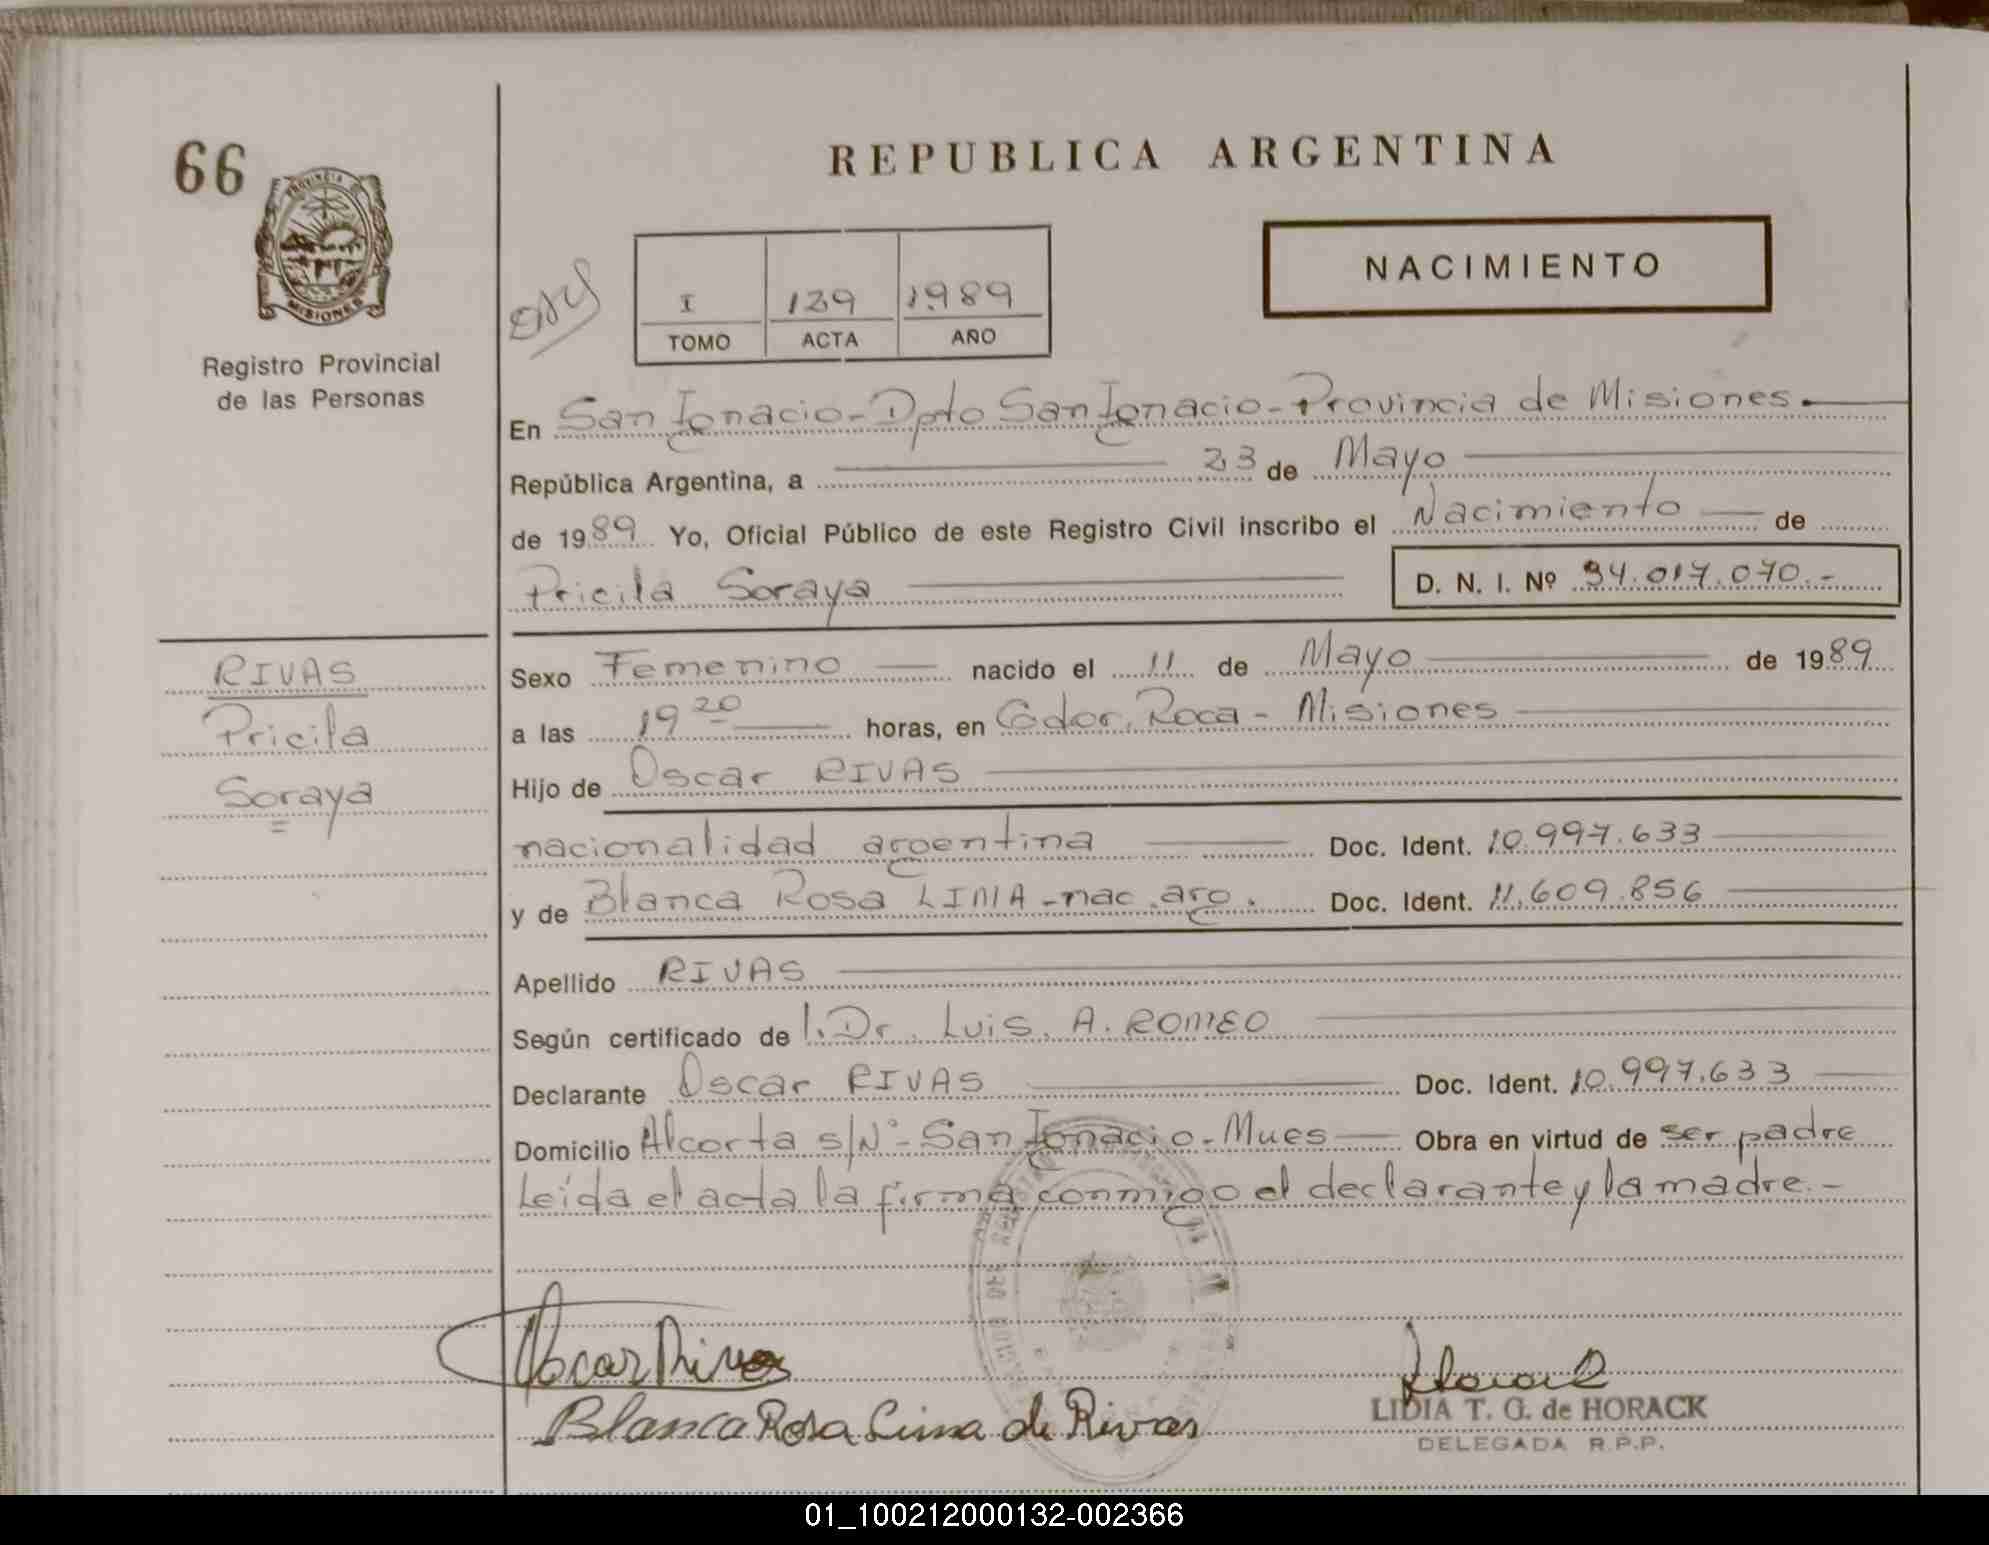 66
PROVINCIA DE
MISIONES
Registro Provincial
de las Personas
REPUBLICA ARGENTINA
NACIMIENTO
I 139 1989
TOMO ACTA AÑO
En San Ignacio - Dpto San Ignacio - Provincia de Misiones.
República Argentina, a 23 de Mayo
de 1989 Yo, Oficial Público de este Registro Civil inscribo el Nacimiento de
Pricila Soraya D. N. I. Nº 34.017.070.-
RIVAS
Pricila
Soraya
Sexo Femenino nacido el 11 de Mayo de 1989
a las 19 20 horas, en Gdor. Roca - Misiones
Hijo de Oscar RIVAS
nacionalidad argentina Doc. Ident. 10.997.633
y de Blanca Rosa LIMA - nac. arg. Doc. Ident. 11.609.856
Apellido RIVAS
Según certificado de l. Dr. Luis. A. ROMEO
Declarante Oscar RIVAS Doc. Ident. 10.997.633
Domicilio Alcorta s/Nº - San Ignacio - Mnes Obra en virtud de ser padre
Leída el acta la firma conmigo el declarante y la madre.-
Oscar Rivas
Blanca Rosa Lima de Rivas
LIDIA T. G. de HORACK
DELEGADA R.P.P.
01_100212000132-002366